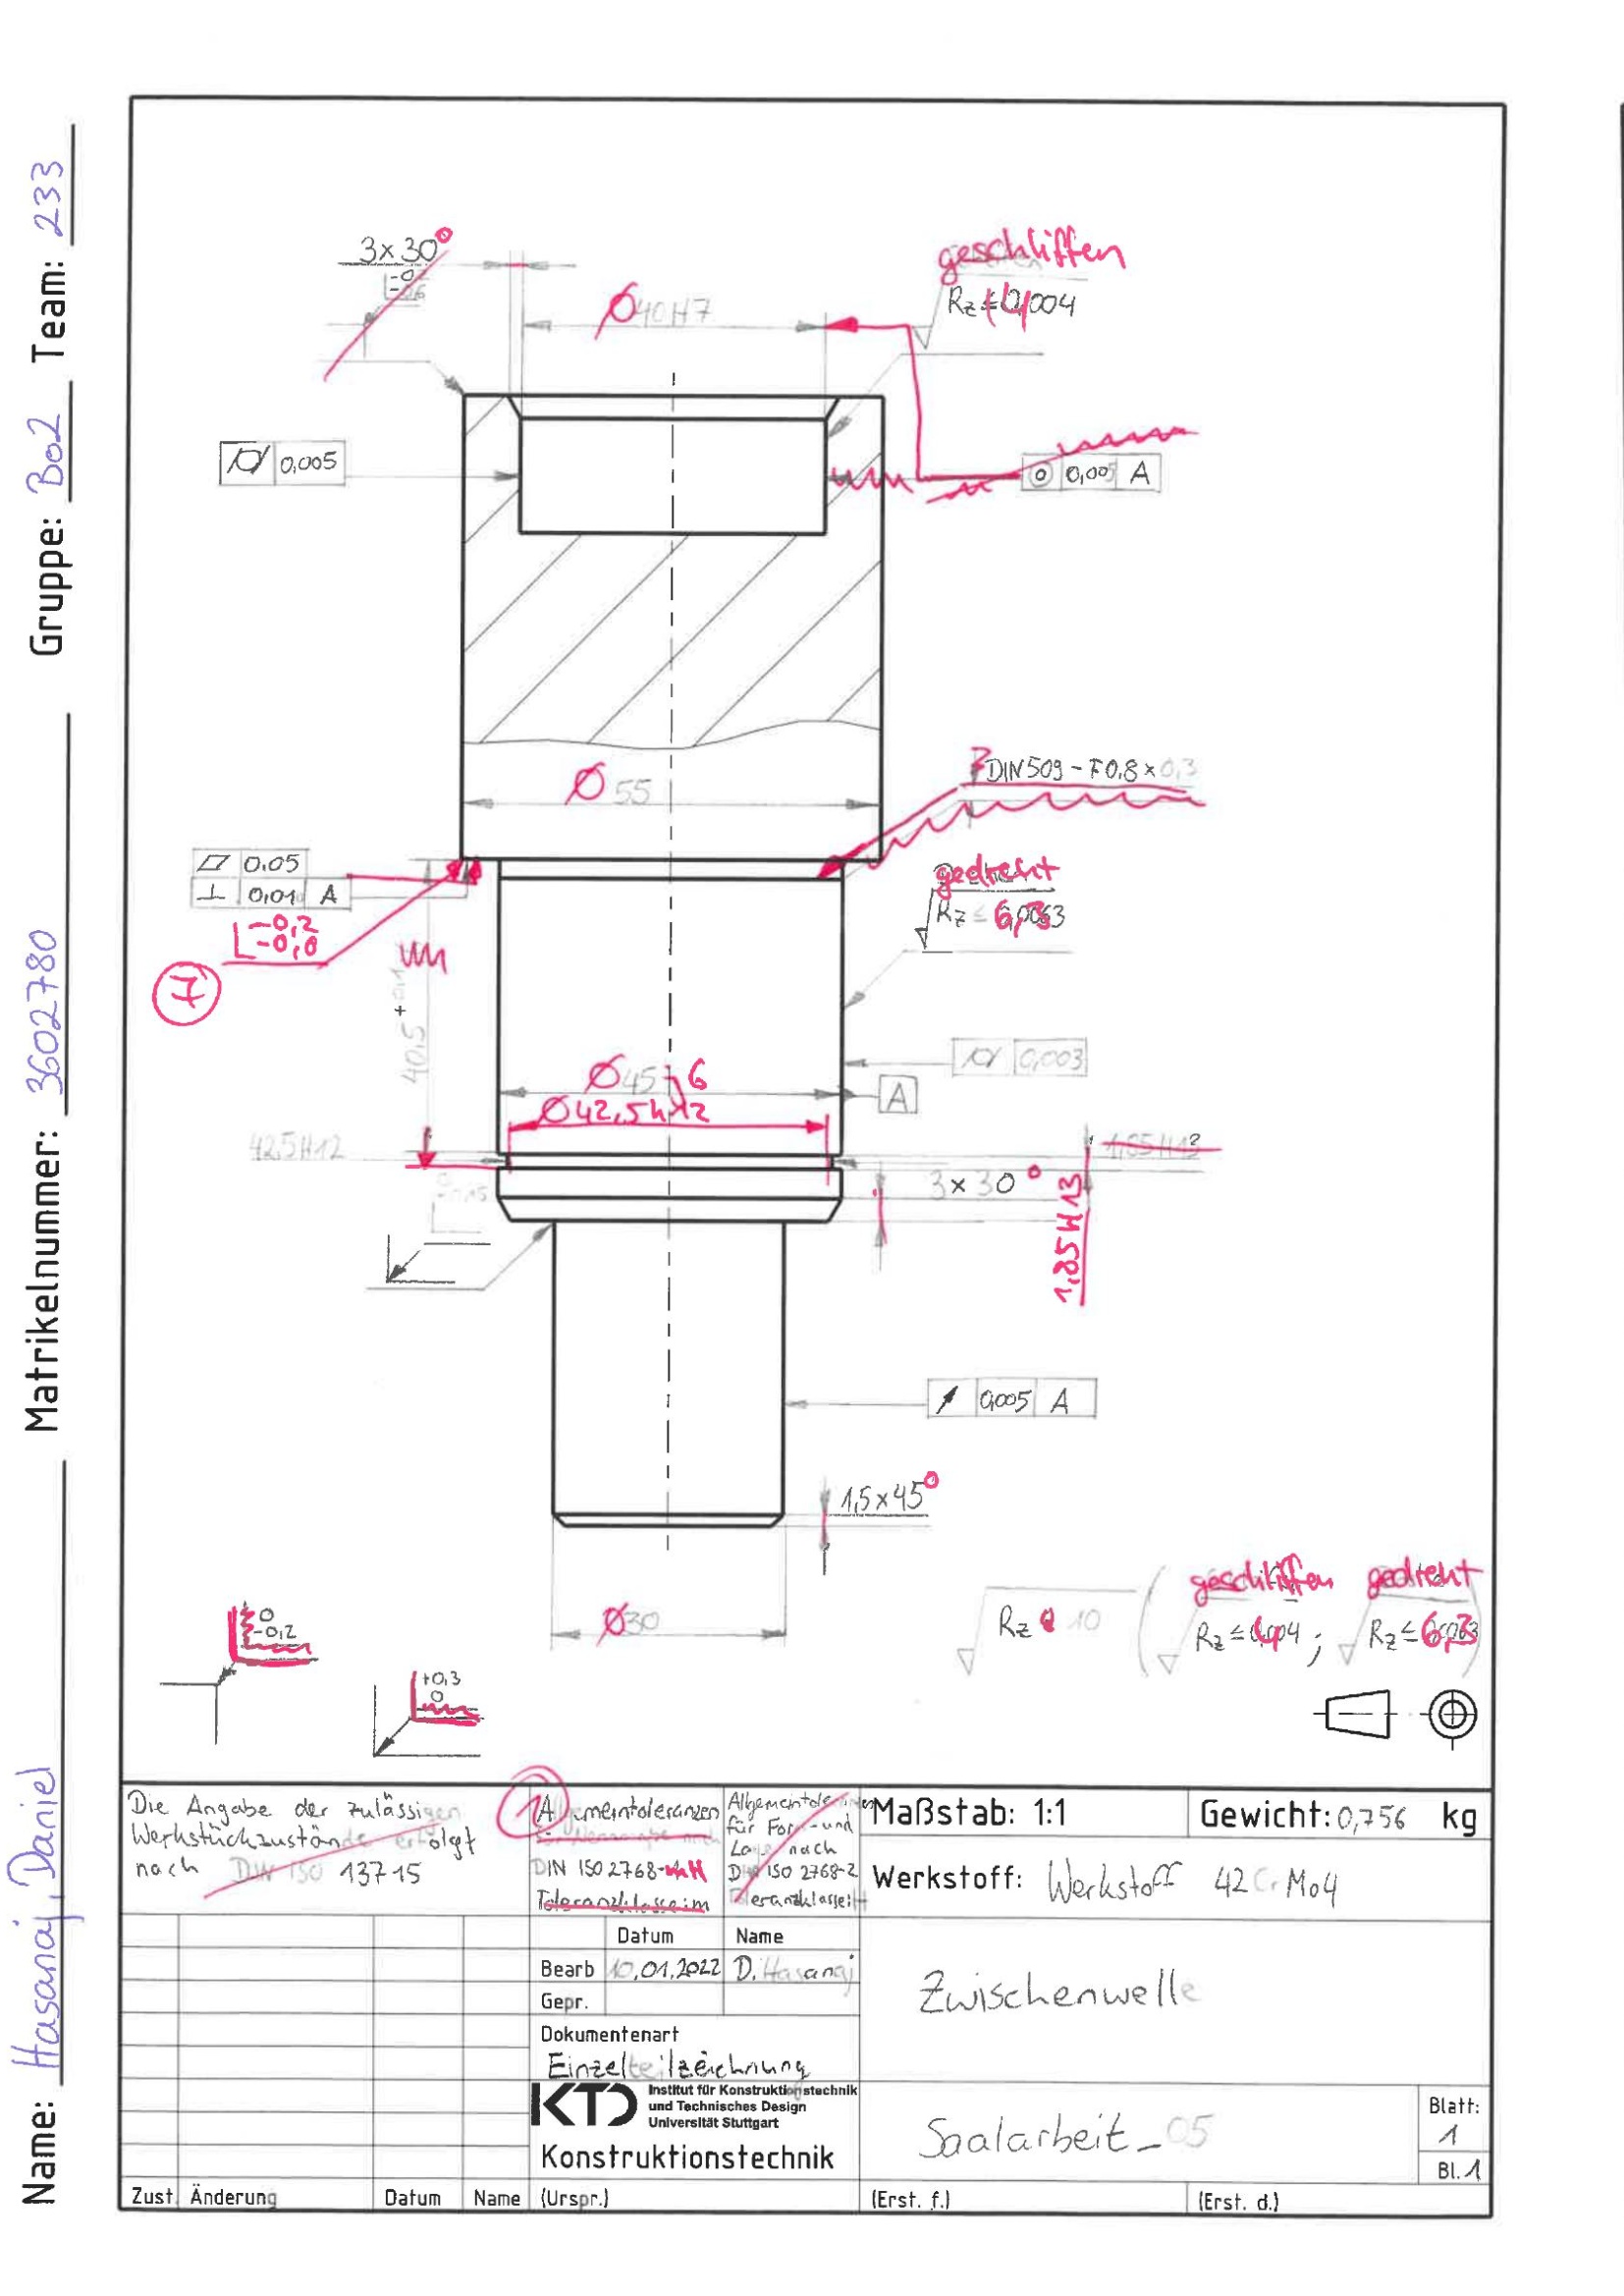 Name: Hasanaj, Daniel Matrikelnummer: 3602780 Gruppe: B02 Team: 233
3x30°
Ø40H7
geschliffen
0,005
0,005 A
DIN 509 - F0,8 x 0,3
Ø 55
0.05
0,01 A
-0,2
7
gedreht
40,5 +0,1
0,003
Ø45
6
A
Ø42,5h12
42,5H12
1,85H13
3x30°
1,85H13
0,005 A
1,5x45°
Ø30
0
-0,2
+0,3
0
Rz 10
geschliffen
gedreht
Die Angabe der zulässigen
Werkstückzustände erfolgt
nach DIN ISO 13715
1
Allgemeintoleranzen
DIN ISO 2768-mH
Toleranzklasse: m
für Form- und
Lage nach
DIN ISO 2768-2
Maßstab: 1:1
Gewicht: 0,756 kg
Werkstoff: Werkstoff 42CrMo4
Datum Name
Bearb 10.01.2022 D. Hasanaj
Gepr.
Dokumentenart
Einzelteilzeichnung
Zwischenwelle
KTD
Institut für Konstruktionstechnik
und Technisches Design
Universität Stuttgart
Konstruktionstechnik
Saalarbeit_05
Blatt:
1
Bl. 1
Zust. Änderung Datum Name (Urspr.) (Erst. f.) (Erst. d.)